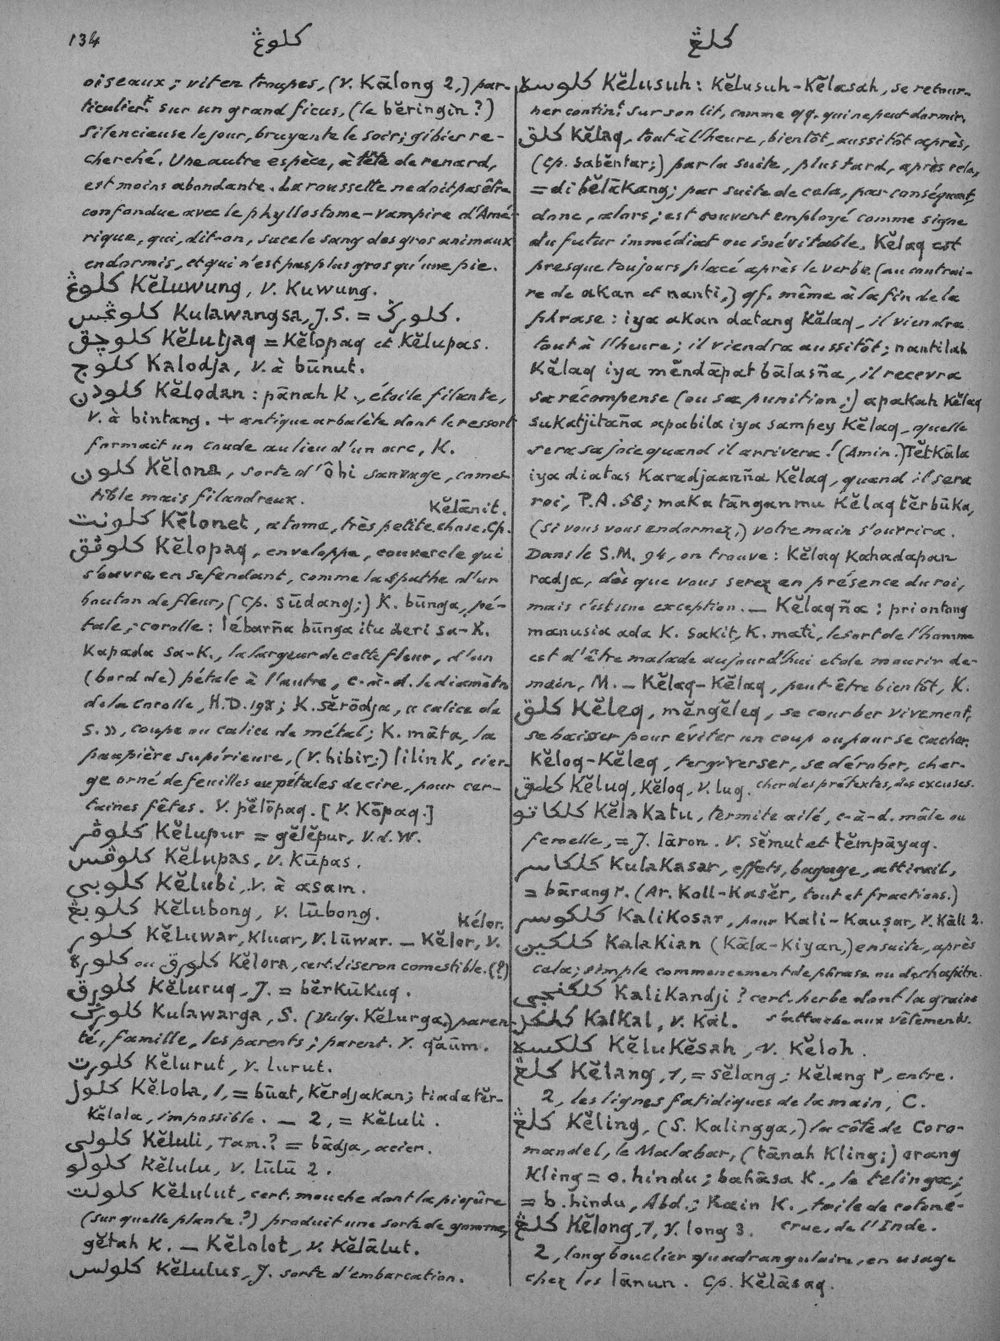 134
كلوڠ
كلڠ
oiseaux; vit en troupes, (v. Kālong 2,) par-
ticulier.t sur un grand ficus, (le bĕringin?)
Silencieuse le jour, bruyante le soir; gibier re-
cherché. Une autre espèce, à tête de renard,
est moins abondante. La roussette ne doit pas être
confondue avec le phyllostome-vampire d'Amé-
rique, qui, dit-on, suce le sang des gros animaux
endormis, et qui n'est pas plus gros qu'une pie.
كلووڠ Kĕluwung, v. Kuwung.
Kulawangsa, J. S. =
كلوچق Kĕlutjaq = Kĕlopaq et Kĕlupas.
كلوج Kalodja, v. à būnut.
كلودن Kĕlodan: pānah K., étoile filante,
v. à bintang. + antique arbalète dont le ressort
formait un coude au lieu d'un arc, K.
كلون Kĕlona, sorte d'ôbi sauvage, comes-
tible mais filandreux.
كلونت Kĕlonet, atome, très petite chose. Cp. Kĕlānit.
كلوڤق Kĕlopaq, enveloppe, couvercle qui
s'ouvre en se fendant, comme la spathe d'un
bouton de fleur, (Cp. sūdang;) K. būnga, pé-
tale, corolle: lébarña būnga itu deri sa-K.
Kapada sa-K., la largeur de cette fleur, d'un
(bord de) pétale à l'autre, c-à-d. le diamètre
de la corolle, H.D. 198; K. sĕrōdja, « calice de
S. », coupe ou calice de métal; K. māta, la
paupière supérieure, (v. bibir;) lilin K., cier-
ge orné de feuilles ou pétales de cire, pour cer-
taines fêtes. V. pĕlōpaq. [V. Kōpaq.]
كلوڤر Kĕlupur = gĕlĕpur, v.d.W.
كلوڤس Kĕlupas, v. Kūpas.
كلوبي Kĕlubi, v. à asam.
كلوبڠ Kĕlubong, v. lūbong.
كلور Kĕluwar, Kluar, v. lūwar. — Kĕlor, v. Kélor.
كلوره ou كلورق Kĕlora, cert. liseron comestible. (?)
كلورق Kĕluruq, J. = bĕrkūkuq.
كلورݢ Kulawarga, S. (vulg. Kĕlurga,) paren-
té, famille, les parents; parent. V. qāūm.
كلورت Kĕlurut, v. lurut.
كلول Kĕlola, 1, = būat, Kĕrdjakan; tiada tĕr-
Kĕlola, impossible. — 2, = Kĕluli.
كلولي Kĕluli, Tam.? = bādja, acier.
كلولو Kĕlulu, v. lūlū 2.
كلولت Kĕlulut, cert. mouche dont la piqûre
(sur quelle plante?) produit une sorte de gomme,
gĕtah K. — Kĕlolot, v. Kĕlālut.
كلولس Kĕlulus, J. sorte d'embarcation.
كلوسه Kĕlusuh: Kĕlusuh-Kĕlasah, se retour-
ner contin.t sur son lit, comme qq. qui ne peut dormir.
كلق Kĕlaq, tout à l'heure, bientôt, aussitôt après,
(Cp. sabĕntar;) par la suite, plus tard, après cela,
= di bĕlākang; par suite de cela, par conséquent,
donc, alors; est souvent employé comme signe
du futur immédiat ou inévitable. Kĕlaq est
presque toujours placé après le verbe (au contrai-
re de akan et nanti,) qf. même à la fin de la
phrase: iya akan datang Kĕlaq, il viendra
tout à l'heure; il viendra aussitôt; nantilah
Kĕlaq iya mĕndāpat bālasña, il recevra
sa récompense (ou sa punition;) apakah Kĕlaq
sukatjitaña apabila iya sampey Kĕlaq, quelle
sera sa joie quand il arrivera! (Amin.) Tĕtkāla
iya diatas Karadjaanña Kĕlaq, quand il sera
roi, P.A. 58; maka tānganmu Kĕlaq tĕrbūka,
(si vous vous endormez,) votre main s'ouvrira.
Dans le S.M. 94, on trouve: Kĕlaq Kahadapan
radja, dès que vous serez en présence du roi,
mais c'est une exception. — Kĕlaqña: pri ontong
manusia ada K. sakit, K. mati, le sort de l'homme
est d'être malade aujourd'hui et de mourir de-
main, M. — Kĕlaq-Kĕlaq, peut-être bientôt, K.
كلق Kĕleq, mĕngĕleq, se courber vivement,
se baisser pour éviter un coup ou pour se cacher.
Kĕloq-Kĕleq, tergiverser, se dérober, cher-
cher des prétextes, des excuses.
كلق Kĕluq, Kĕloq, v. luq.
كلكاتو Kĕlakatu, termite ailé, c-à-d. mâle ou
femelle, = J. lāron. V. sĕmut et tĕmpāyaq.
كلكاسر Kulakasar, effets, bagage, attirail,
= bārang². (Ar. Koll-Kasĕr, tout et fractions.)
كلكوسر Kalikosar, pour Kali-Kauṣar, v. Kāli 2.
كلكين Kalakian (Kāla-Kiyan,) ensuite, après
cela; simple commencement de phrase ou de chapitre.
كلكنجي Kalikandji? cert. herbe dont la graine
s'attache aux vêtements.
كلكل Kalkal, v. Kal.
كلكسه Kĕlukĕsah, v. Kĕloh.
كلڠ Kĕlang, 1, = sĕlang; Kĕlang², entre.
2, les lignes fatidiques de la main, C.
كلڠ Kĕling, (S. Kalingga,) la côte de Coro-
mandel, le Malabar, (tānah Kling;) orang
Kling = o. hindu; bahāsa K., le telinga;
= b. hindu, Abd.; Kain K., toile de coton é-
crue, de l'Inde.
كلڠ Kĕlong, 1, v. long 3.
2, long bouclier quadrangulaire, en usage
chez les lānun. Cp. Kĕlāsaq.